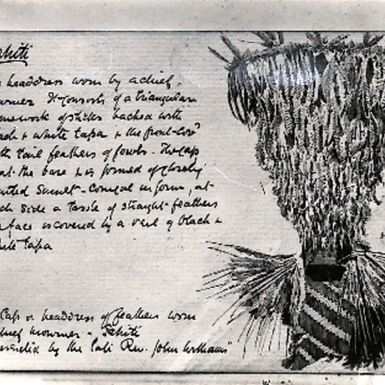 Tahiti
headdress worn by a chief
mourner It consists of a triangular
framework of sticks backed with
& white tapa & the front
tail feathers of fowls. The cap
at the base is formed of closely
Sinnet - Conical in form, at
side a tassle of straight feathers
face is covered by a veil of black &
tapa
Cap or headdress of feathers worn
chief mourner - Tahiti
by the late Rev. John Williams"